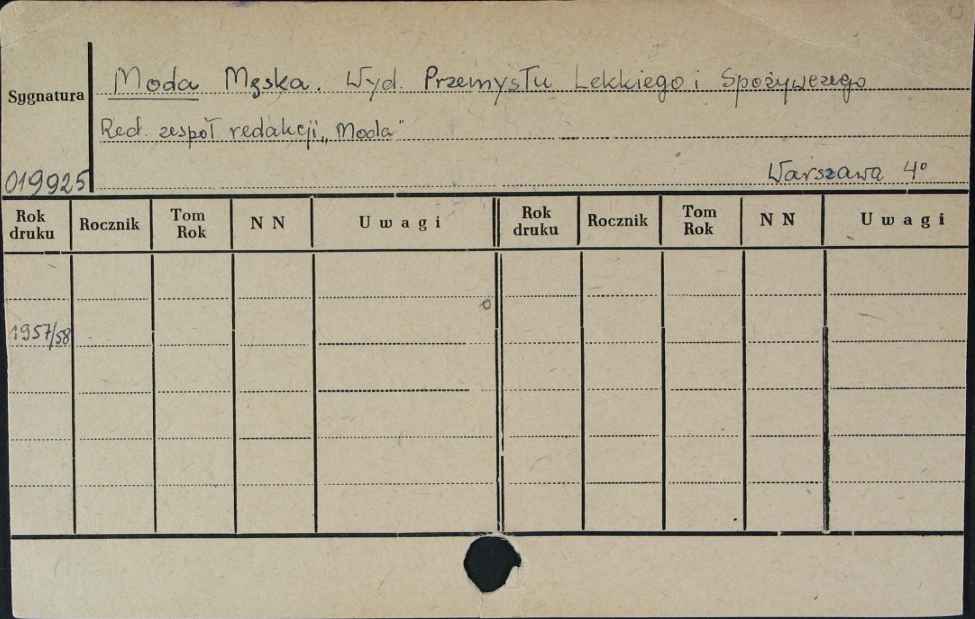 Moda Męska. Wyd. Przemysłu Lekkiego i Spożywczego
Sygnatura
Red. zespół redakcji „Moda"
019925
Warszawa 4°
Rok druku Rocznik Tom Rok N N Uwagi Rok druku Rocznik Tom Rok N N Uwagi
1957/58